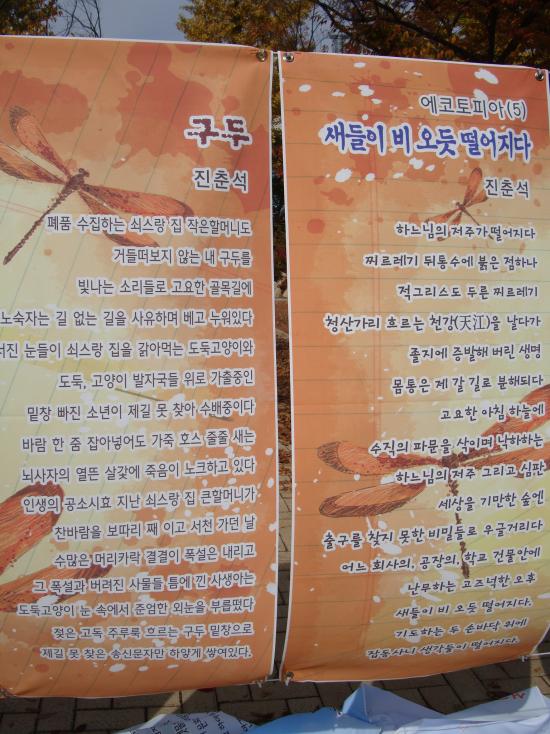 구두
진춘석
폐품 수집하는 쇠스랑 집 작은할머니도
거들떠보지 않는 내 구두를
빛나는 소리들로 고요한 골목길에
노숙자는 길 없는 길을 사유하며 베고 누워있다
진 눈들이 쇠스랑 집을 갉아먹는 도둑고양이와
도둑, 고양이 발자국들 위로 가출중인
밑창 빠진 소년이 제길 못 찾아 수배중이다
바람 한 줌 잡아넣어도 가죽 호스 줄줄 새는
뇌사자의 열뜬 살갗에 죽음이 노크하고 있다
인생의 공소시효 지난 쇠스랑 집 큰할머니가
찬바람을 보따리 째 이고 서천 가던 날
수많은 머리카락 결결이 폭설은 내리고
그 폭설과 버려진 사물들 틈에 낀 사생아는
도둑고양이 눈 속에서 준엄한 외눈을 부릅떴다
젖은 고독 주루룩 흐르는 구두 밑창으로
제길 못 찾은 송신문자만 하얗게 쌓여있다.
에코토피아(5)
새들이 비 오듯 떨어지다
진춘석
하느님의 저주가 떨어지다
찌르레기 뒤통수에 붉은 점하나
적그리스도 두른 찌르레기
청산가리 흐르는 천강(天江)을 날다가
졸지에 증발해 버린 생명
몸통은 제 갈 길로 분해되다
고요한 아침 하늘에
수직의 파문을 삭이며 낙하하는
하느님의 저주 그리고 심판
세상을 기만한 숲엔
출구를 찾지 못한 비밀들로 우글거리다
어느 회사의, 공장의, 학교 건물안에
난무하는 고즈넉한 오후
새들이 비 오듯 떨어지다.
기도하는 두 손바닥 위에
잡동사니 생각들이 떨어지다.